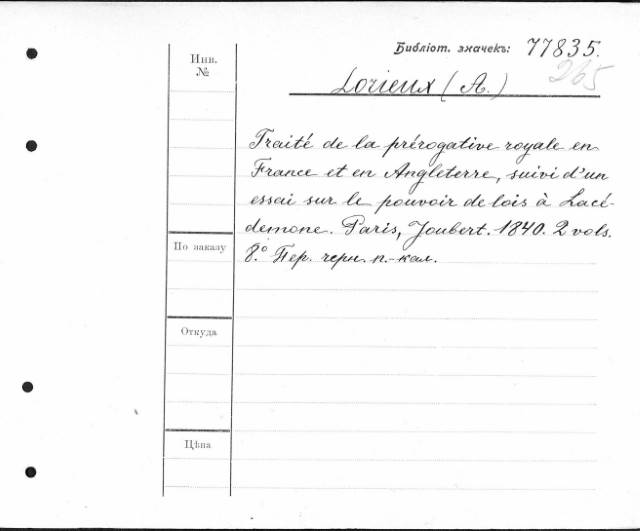 Библіот. значекъ: 77835.
265
Инв.
№
Lorieux (A.)
Traité de la prérogative royale en
France et en Angleterre, suivi d'un
essai sur le pouvoir de lois à Lacé-
demone. Paris, Joubert. 1840. 2 vols.
8.° Пер. черн. п.-кал.
По заказу
Откуда
Цѣна